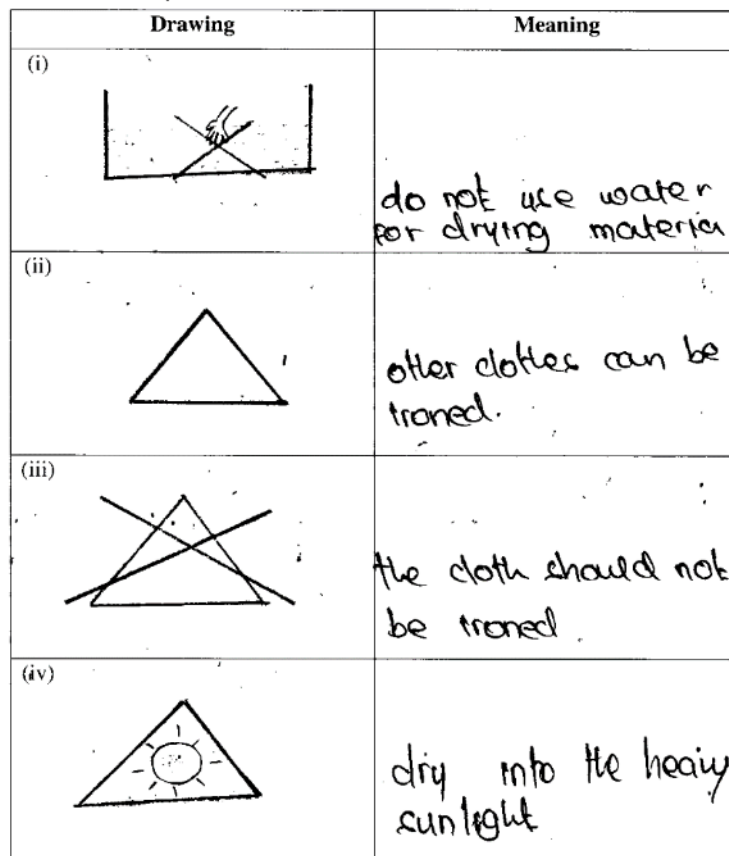 Drawing
Meaning
(i)
do not use water
for drying materia
(ii)
other clothes can be
ironed.
(iii)
the cloth should not
be ironed.
(iv)
dry into the heavy
sunlight